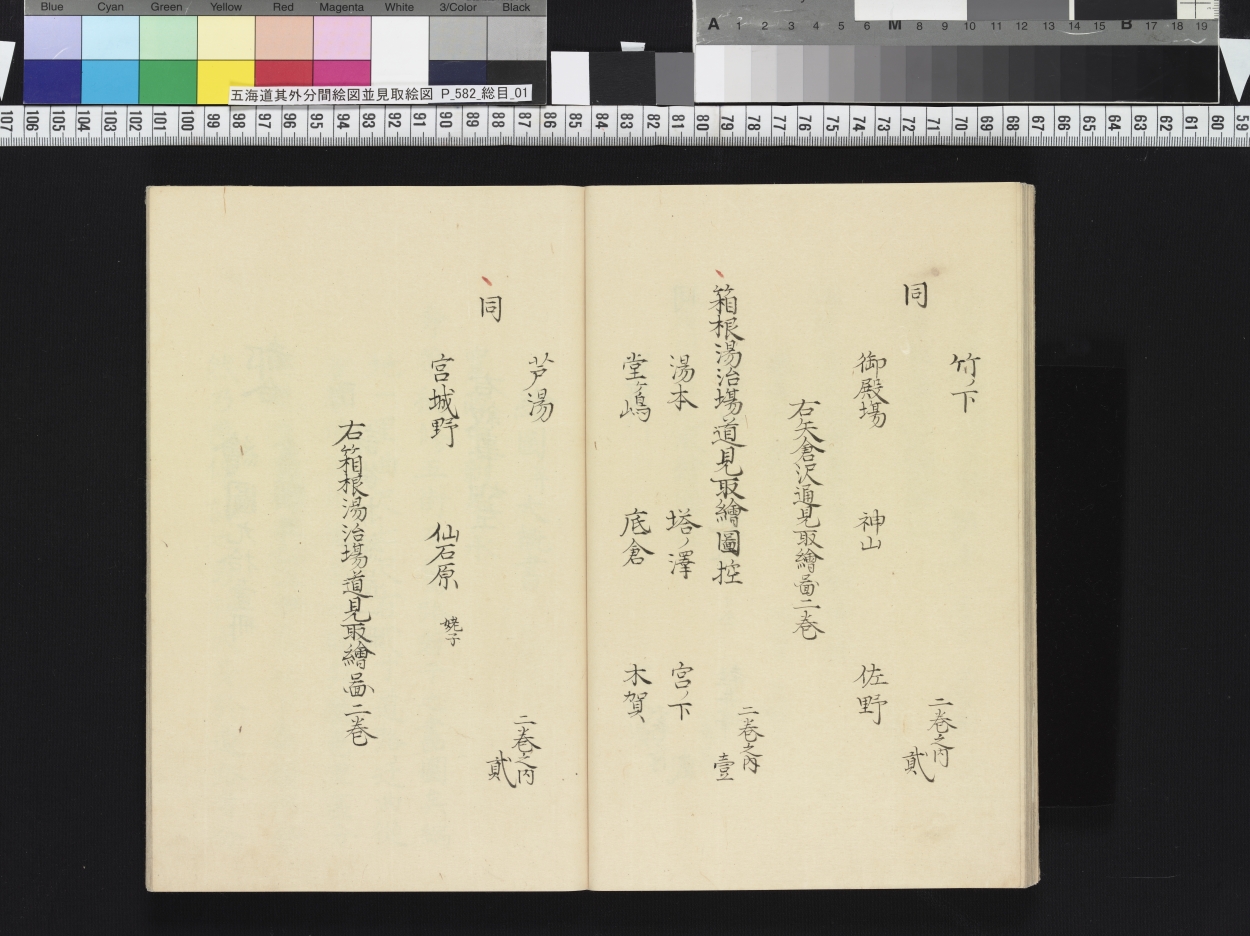 Blue Cyan Green Yellow Red Magenta White 3/Color Black
A 1 2 3 4 5 6 M 8 9 10 11 12 13 14 15 B 17 18 19
五海道其外分間絵図並見取絵図 P_582_総目_01
107 106 105 104 103 102 101 100 99 98 97 96 95 94 93 92 91 90 89 88 87 86 85 84 83 82 81 80 79 78 77 76 75 74 73 72 71 70 69 68 67 66 65 64 63 62 61 60 59
竹ノ下
二巻之内
同 貳
御殿場 神山 佐野
右矢倉沢通見取繪圖二巻
二巻之内
箱根湯治場道見取繪圖控 壹
湯本 塔ノ澤 宮ノ下
堂ヶ嶋 底倉 木賀
芦湯
二巻之内
同 貳
宮城野 仙石原 姥子
右箱根湯治場道見取繪圖二巻